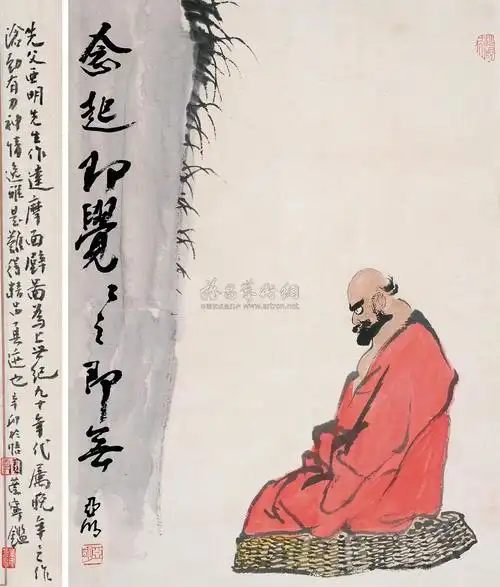 念起即覺〻之即無
亞明
先父亞明先生作達摩面壁圖為上世紀九十年代屬晚年之作
滄勁有力神情逸雅是難得精品真迹也辛卯於悟園葉寧鑑
雅昌藝術網
www.artron.net